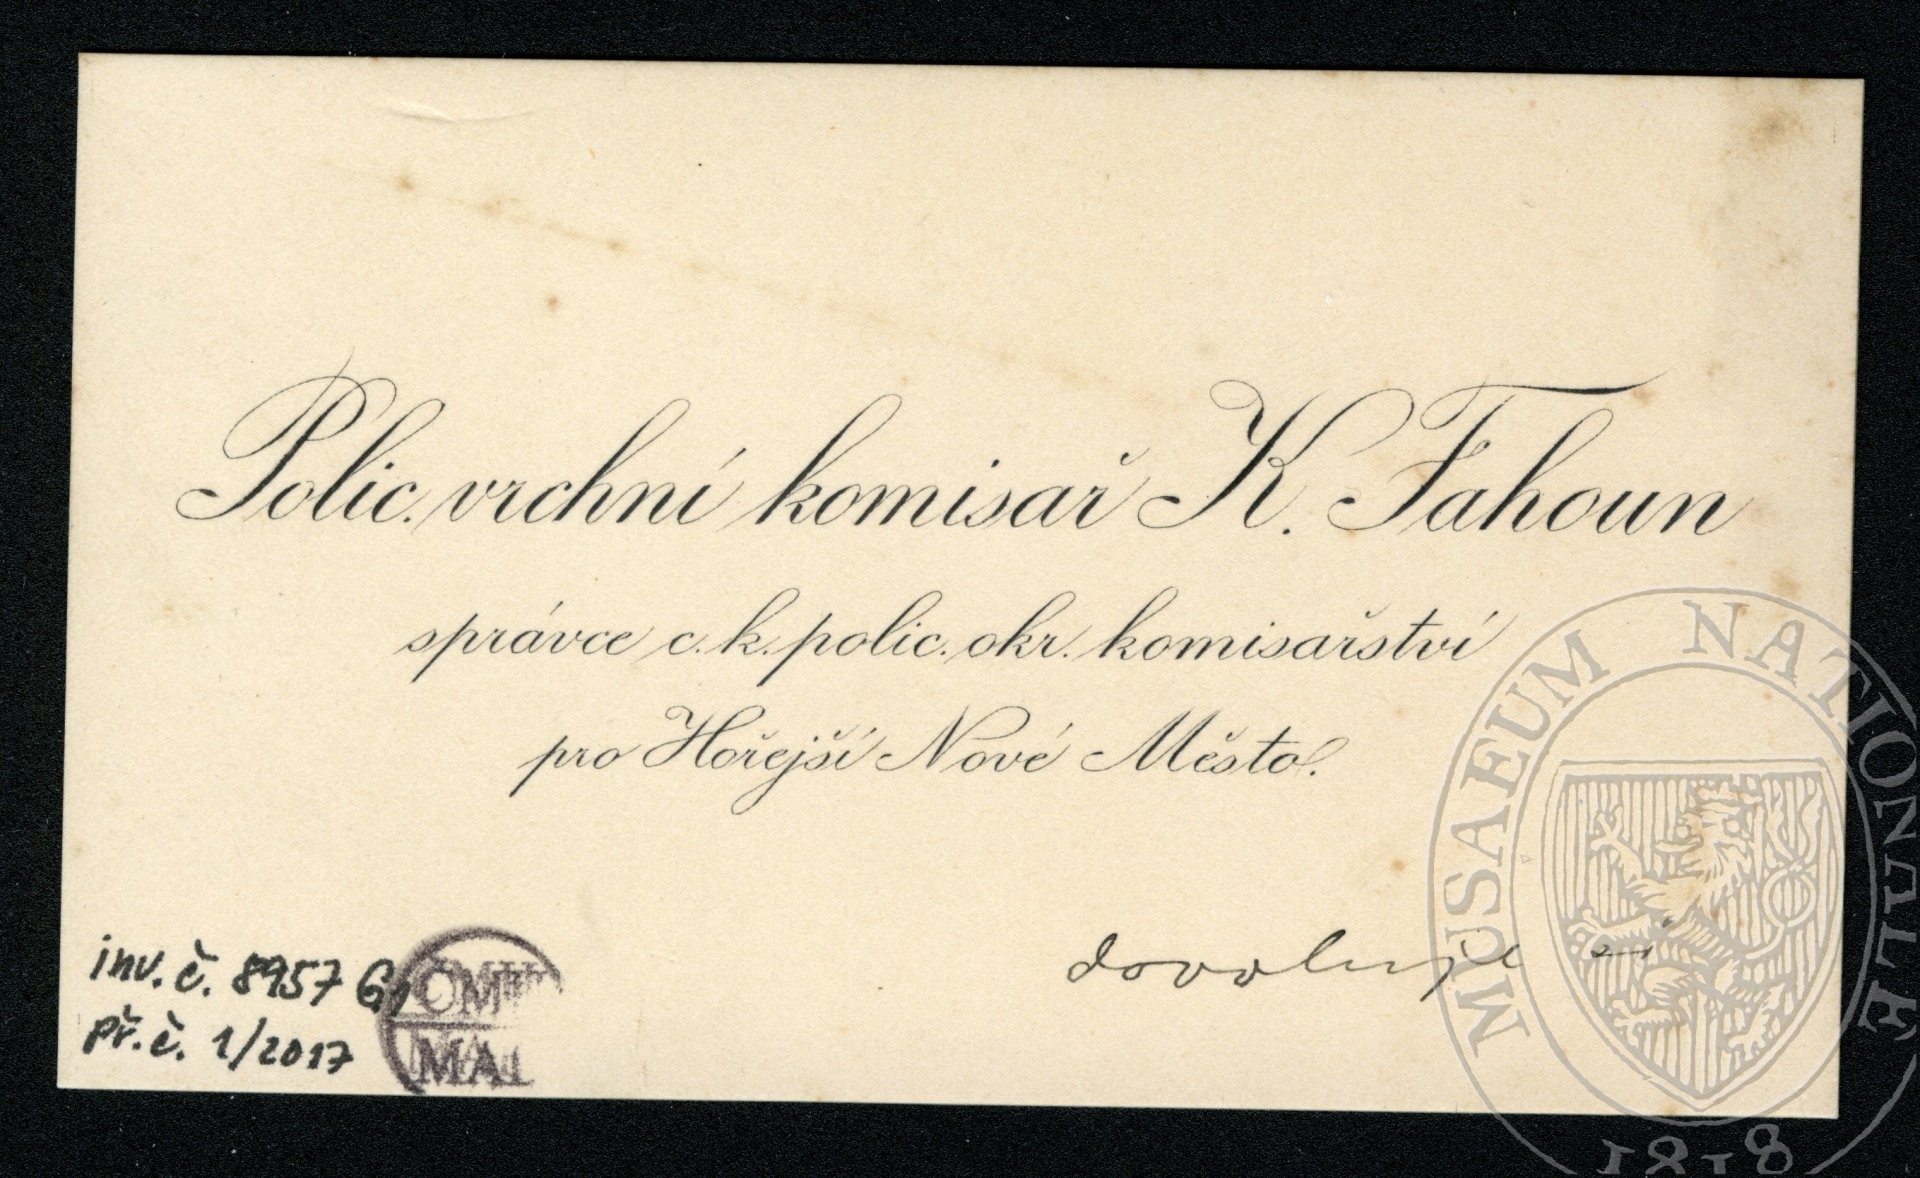 Polic. vrchní komisař K. Fahoun
správce c. k. polic. okr. komisařství
pro Hořejší Nové Město.
dovoluje si
inv. č. 8957
př. č. 1/2017
MUSAEUM NATIONALE
1818